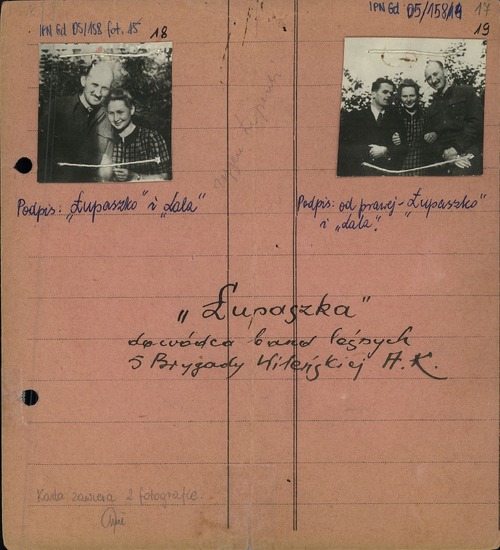 IPN Gd 05/158 fot. 15 18
IPN Gd 05/158/19 17
19
Podpis: „Łupaszko" i „Lala"
Podpis: od prawej - „Łupaszko"
i „Lala".
„Łupaszka"
dowódca band leśnych
5 Brygady Wileńskiej A.K.
Karta zawiera 2 fotografie.